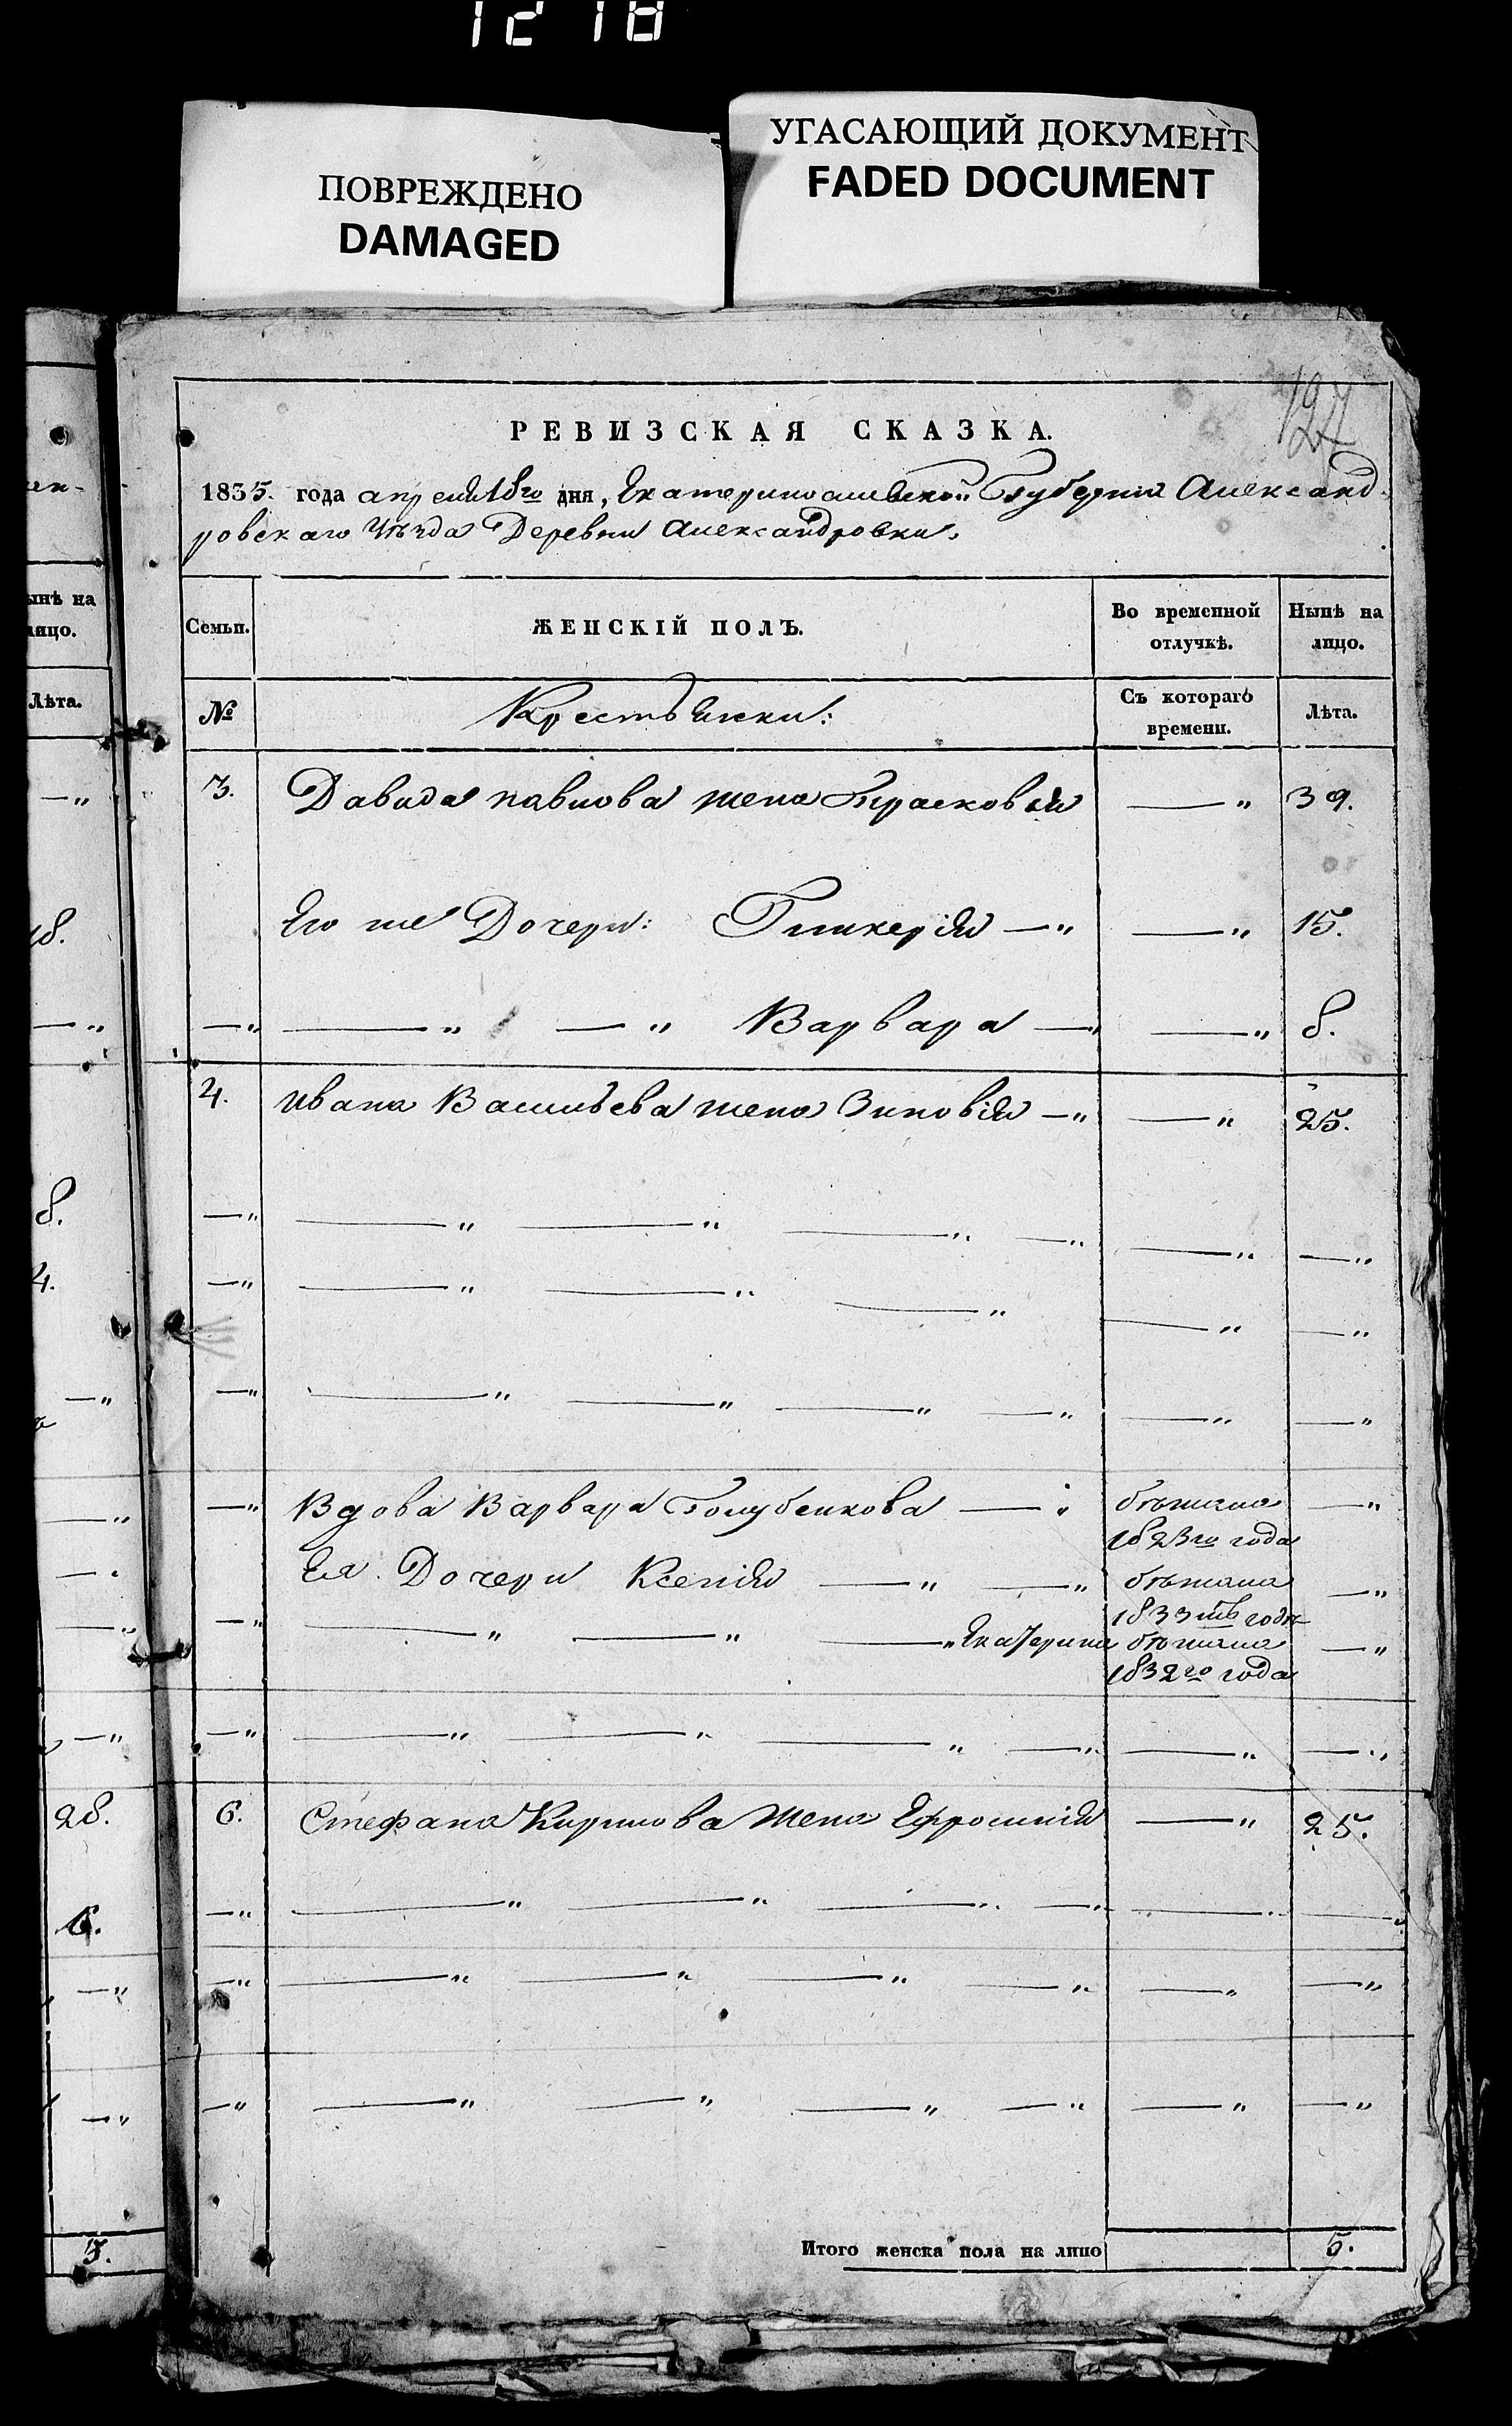 1218
ПОВРЕЖДЕНО
DAMAGED
УГАСАЮЩИЙ ДОКУМЕНТ
FADED DOCUMENT
127
РЕВИЗСКАЯ СКАЗКА.
1835. года апреля 18го дня, Екатеринославской Губерніи Александ-
ровскаго Уѣзда Деревни Александровки.
Семьи. ЖЕНСКІЙ ПОЛЪ. Во временной отлучкѣ. Нынѣ на лицо.
№ Крестьянки: Съ котораго времени. Лѣта.
3. Давида павлова жена Прасковья —„ 39.
Его же Дочери: Гликерія —„ —„ 15.
—„ —„ —„ Варвара —„ —„ 8.
4. Ивана Васильева жена Зиновія —„ —„ 25.
—„ —„ —„ —„ —„ —„ —„
—„ —„ —„ —„ —„ —„
—„ —„ —„ —„ —„ —„ —„
—„ Вдова Варвара Голубенкова —„ бѣжала —„
1823го года
Ея Дочери Ксенія —„ —„ бѣжала —„
1833 годѣ
—„ —„ —„ —„ Екатерина бѣжала —„
1832го года
—„ —„ —„ —„ —„ —„ —„
6. Стефана Кирилова жена Ефросинія —„ 25.
—„ —„ —„ —„ —„ —„ —„
—„ —„ —„ —„ —„ —„ —„
—„ —„ —„ —„ —„ —„ —„
Итого женска пола на лицо 5.
ынѣ на
лицо.
Лѣта.
—„
18.
—„
8.
4.
—„
—„
—„
—„
—„
28.
6.
—„
—„
5.